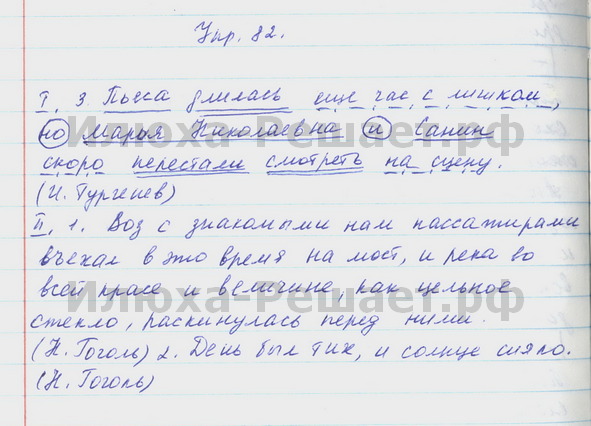 Упр. 82.
I. 3. Пьеса длилась еще час с лишком,
но Марья Николаевна и Санин
скоро перестали смотреть на сцену.
(И. Тургенев)
II. 1. Воз с знакомыми нам пассажирами
въехал в это время на мост, и река во
всей красе и величине, как цельное
стекло, раскинулась перед ними.
(Н. Гоголь) 2. День был тих, и солнце сияло.
(Н. Гоголь)
Илюха-Решает.рф
Илюха-Решает.рф